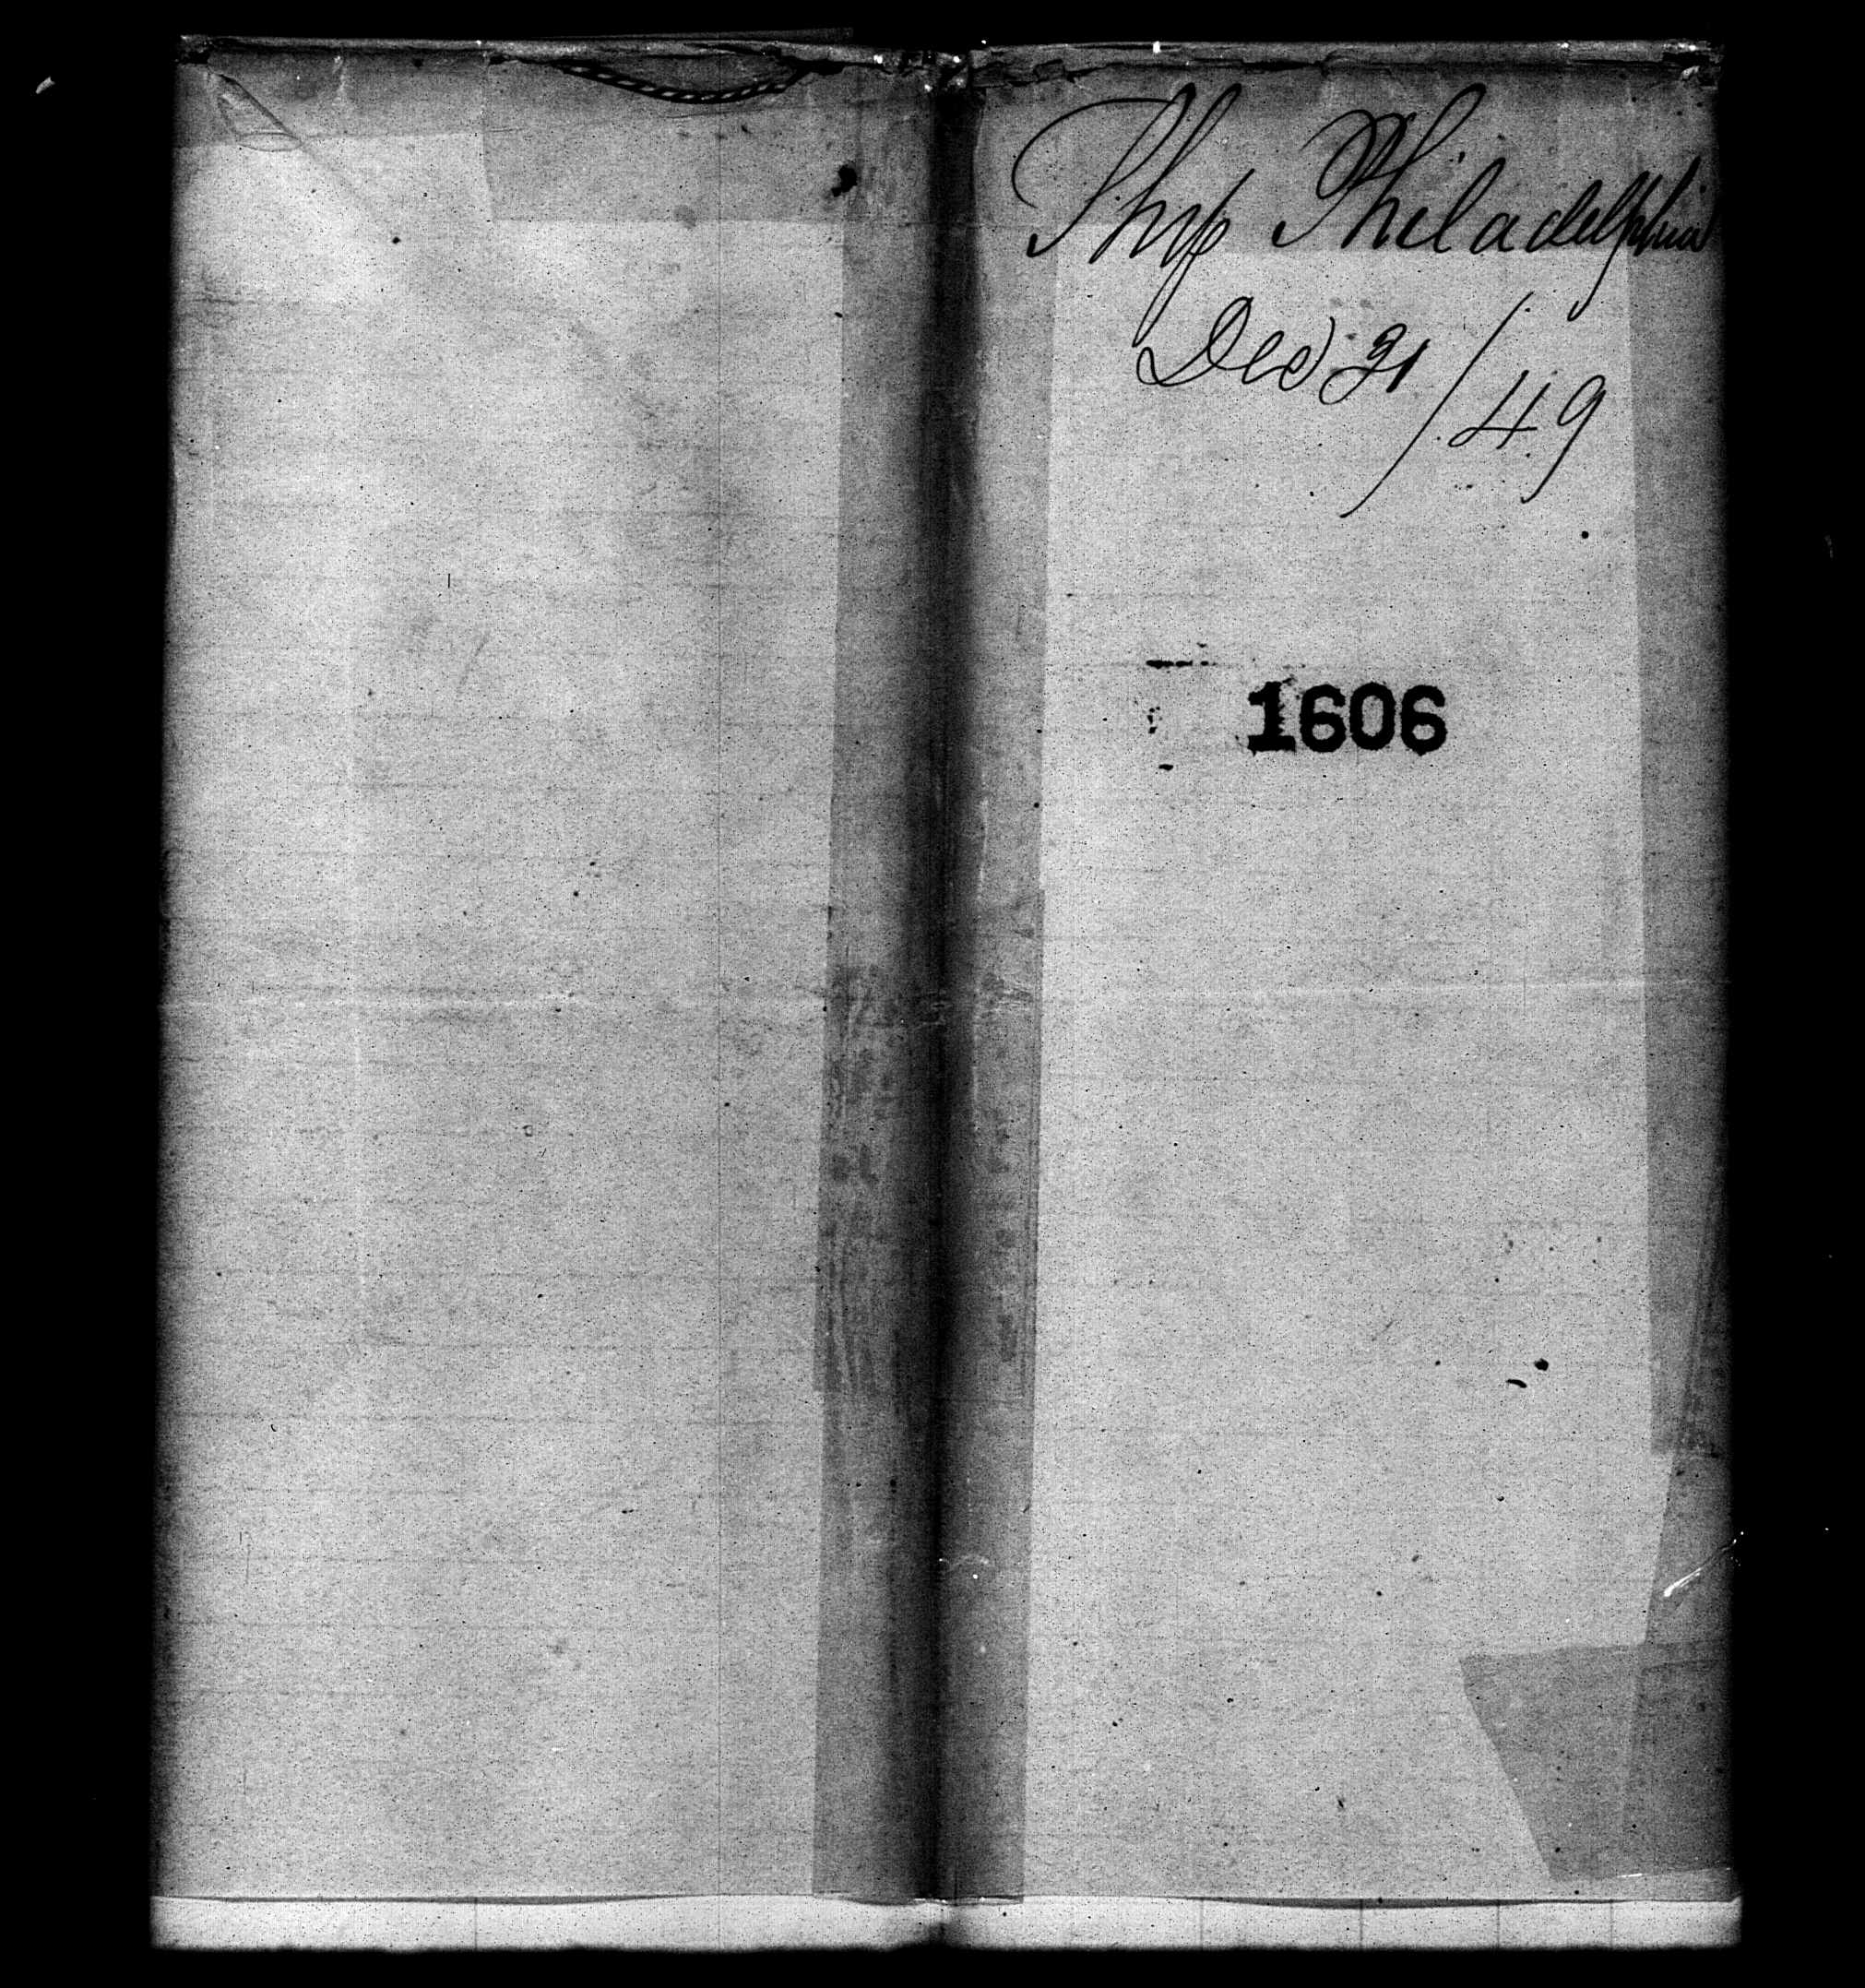 Ship Philadelphia
Dec 31/49
1606